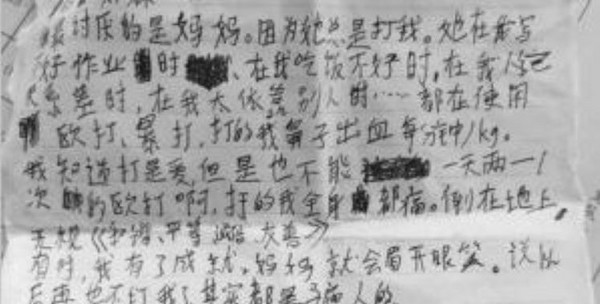 讨厌的是妈妈。因为她总是打我。她在我写
好作业时、在我吃饭不好时,在我
差时,在我太依赖别人时……都在使用
欧打、暴打,打的我鼻子出血每分钟/kg。
我知道打是爱,但是也不能一天两一1
次的欧打啊,打的我全身都痛。倒在地上,
无视《和谐、平等、友善》
有时,我有了成就,妈妈就会眉开眼笑。说以
后再也不打我了其实都是骗人的